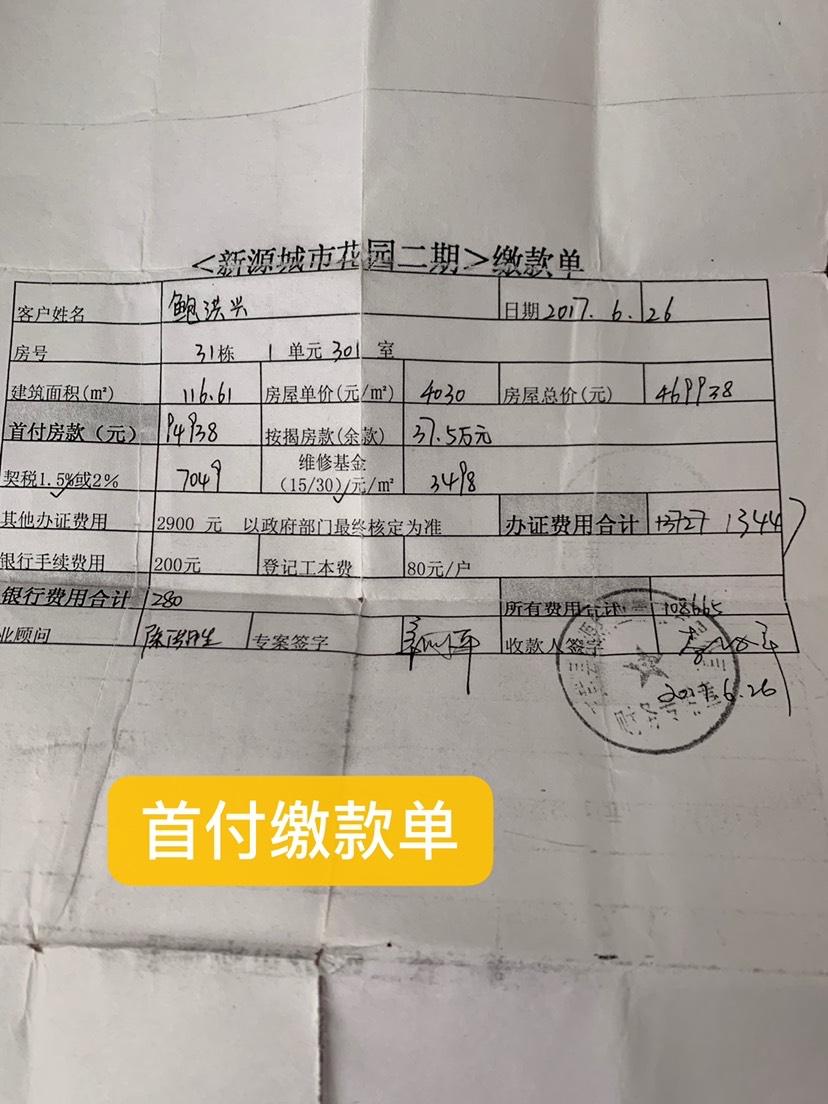 <新源城市花园二期>缴款单
客户姓名 鲍洪兴 日期 2017.6.26
房号 31栋 1 单元 301 室
建筑面积(㎡) 116.61 房屋单价(元/㎡) 4030 房屋总价(元) 469938
首付房款（元） 94938 按揭房款(余款) 37.5万元
契税1.5%或2% 7049 维修基金
(15/30)/元/㎡ 3498
其他办证费用 2900 元 以政府部门最终核定为准 办证费用合计 13727 13447
银行手续费用 200元 登记工本费 80元/户
银行费用合计 280 所有费用合计 108665
业顾问 专案签字 收款人签字
2017.6.26
首付缴款单